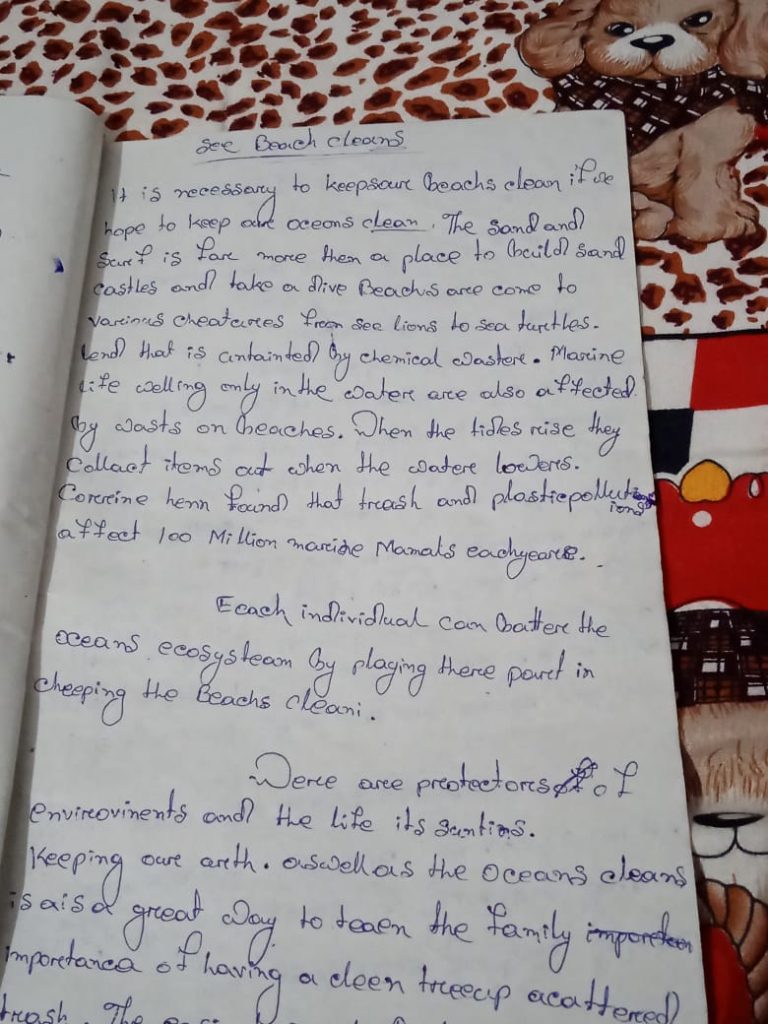 see Beach cleans
It is necessary to keepsour beachs clean if we
hope to keep our oceans clean. The sand and
surf is fare more then a place to build sand
castles and take a dive Beachs are come to
various cheatures from see lions to sea turtles.
lend that is antainted by chemical wastere. Marine
life welling only in the watere are also affected
by wasts on beaches. When the tides rise they
Collact items out when the watere lowers.
Correine henn found that trash and plasticpollutions
affect 100 Million marine Mamats eachyeare.
Ecach individual can battere the
oceans ecosysteam by plaging there parct in
cheeping the Beachs cleani.
Were are protectores of
envirovinents and the life its suntins.
Keeping oure arth. aswell as the oceans cleans
is aisa great way to teaen the family
imporetanca of having a cleen treecup acattered
trash. The